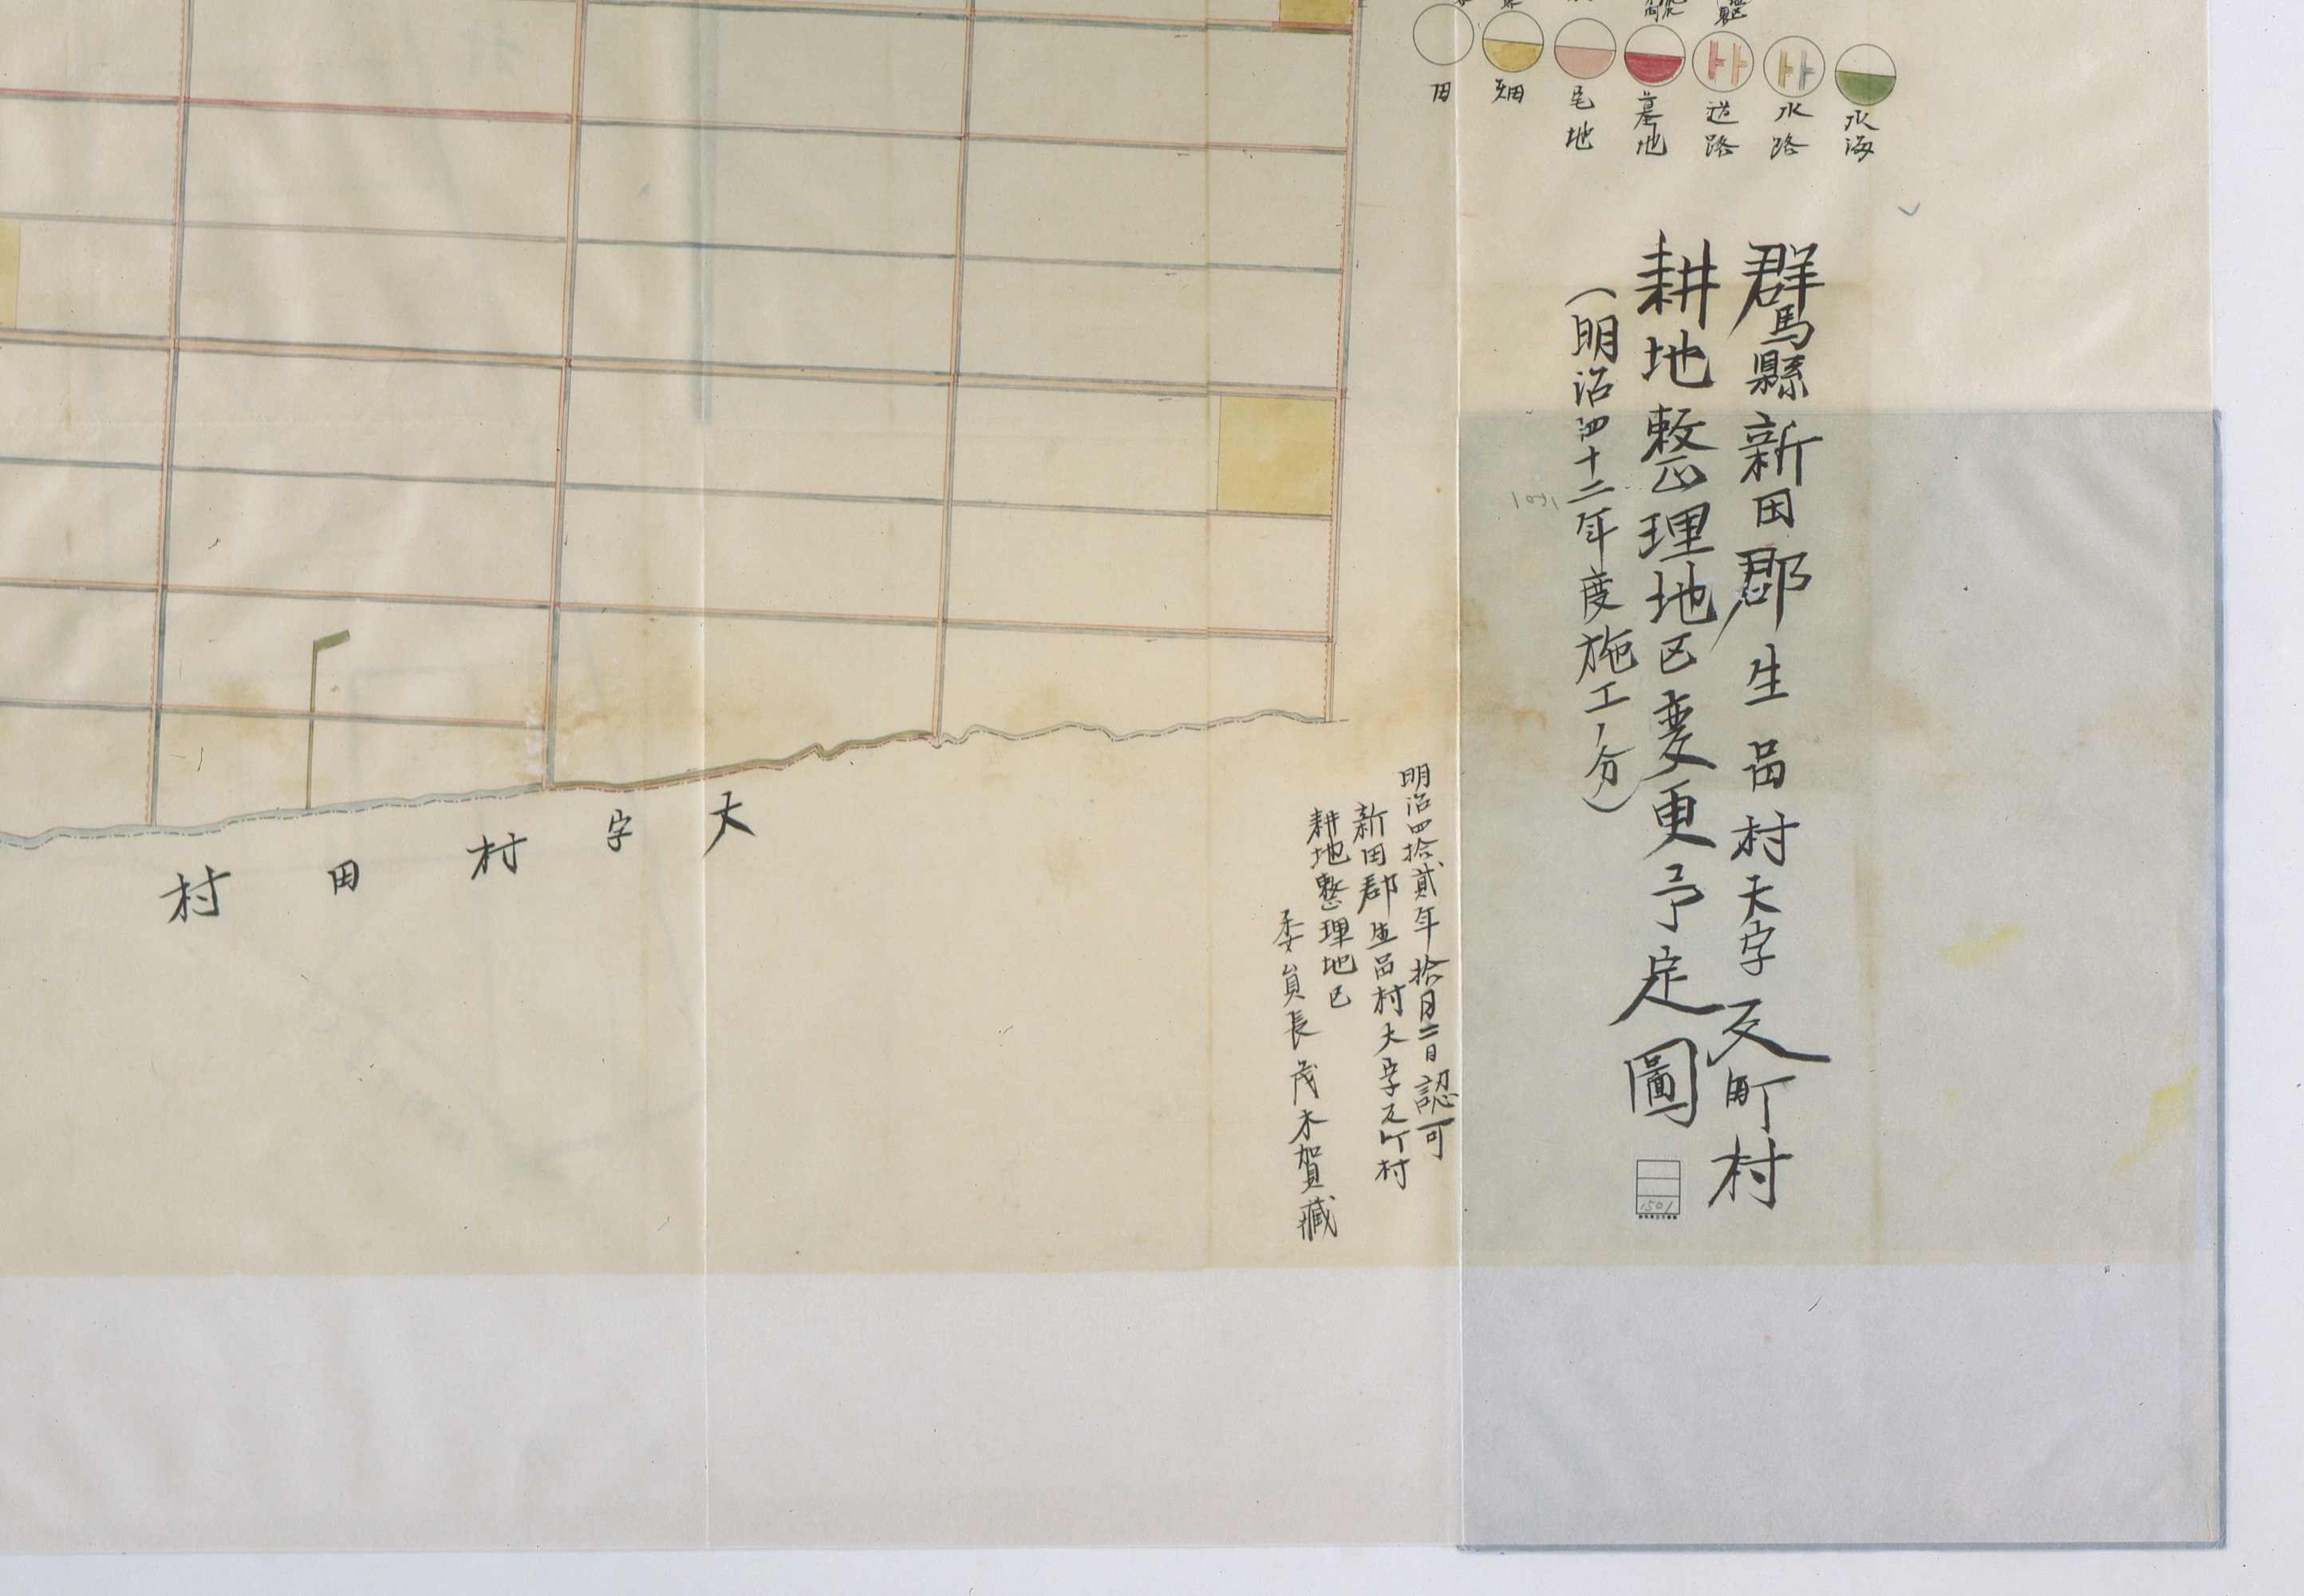 群馬縣新田郡生品村大字反町村
耕地整理地区変更予定圖
(明治四十二年度施工ノ分)
1501
水海
水路
道路
墓地
宅地
畑
田
明治四拾貳年拾月二日認可
新田郡生品村大字反町村
耕地整理地区
委員長茂木賀藏
大字村田村